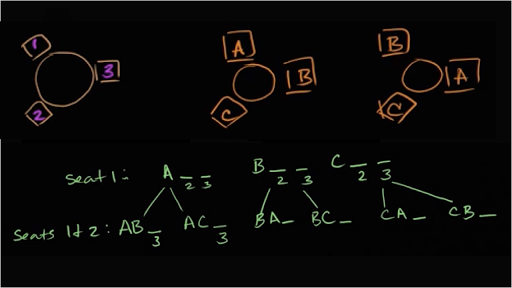 1 3 2
A B C
B A C
seat 1: A _ _ B _ _ C _ _
2 3 2 3 2 3
seats 1 & 2: AB _ AC _ BA _ BC _ CA _ CB _
3 3